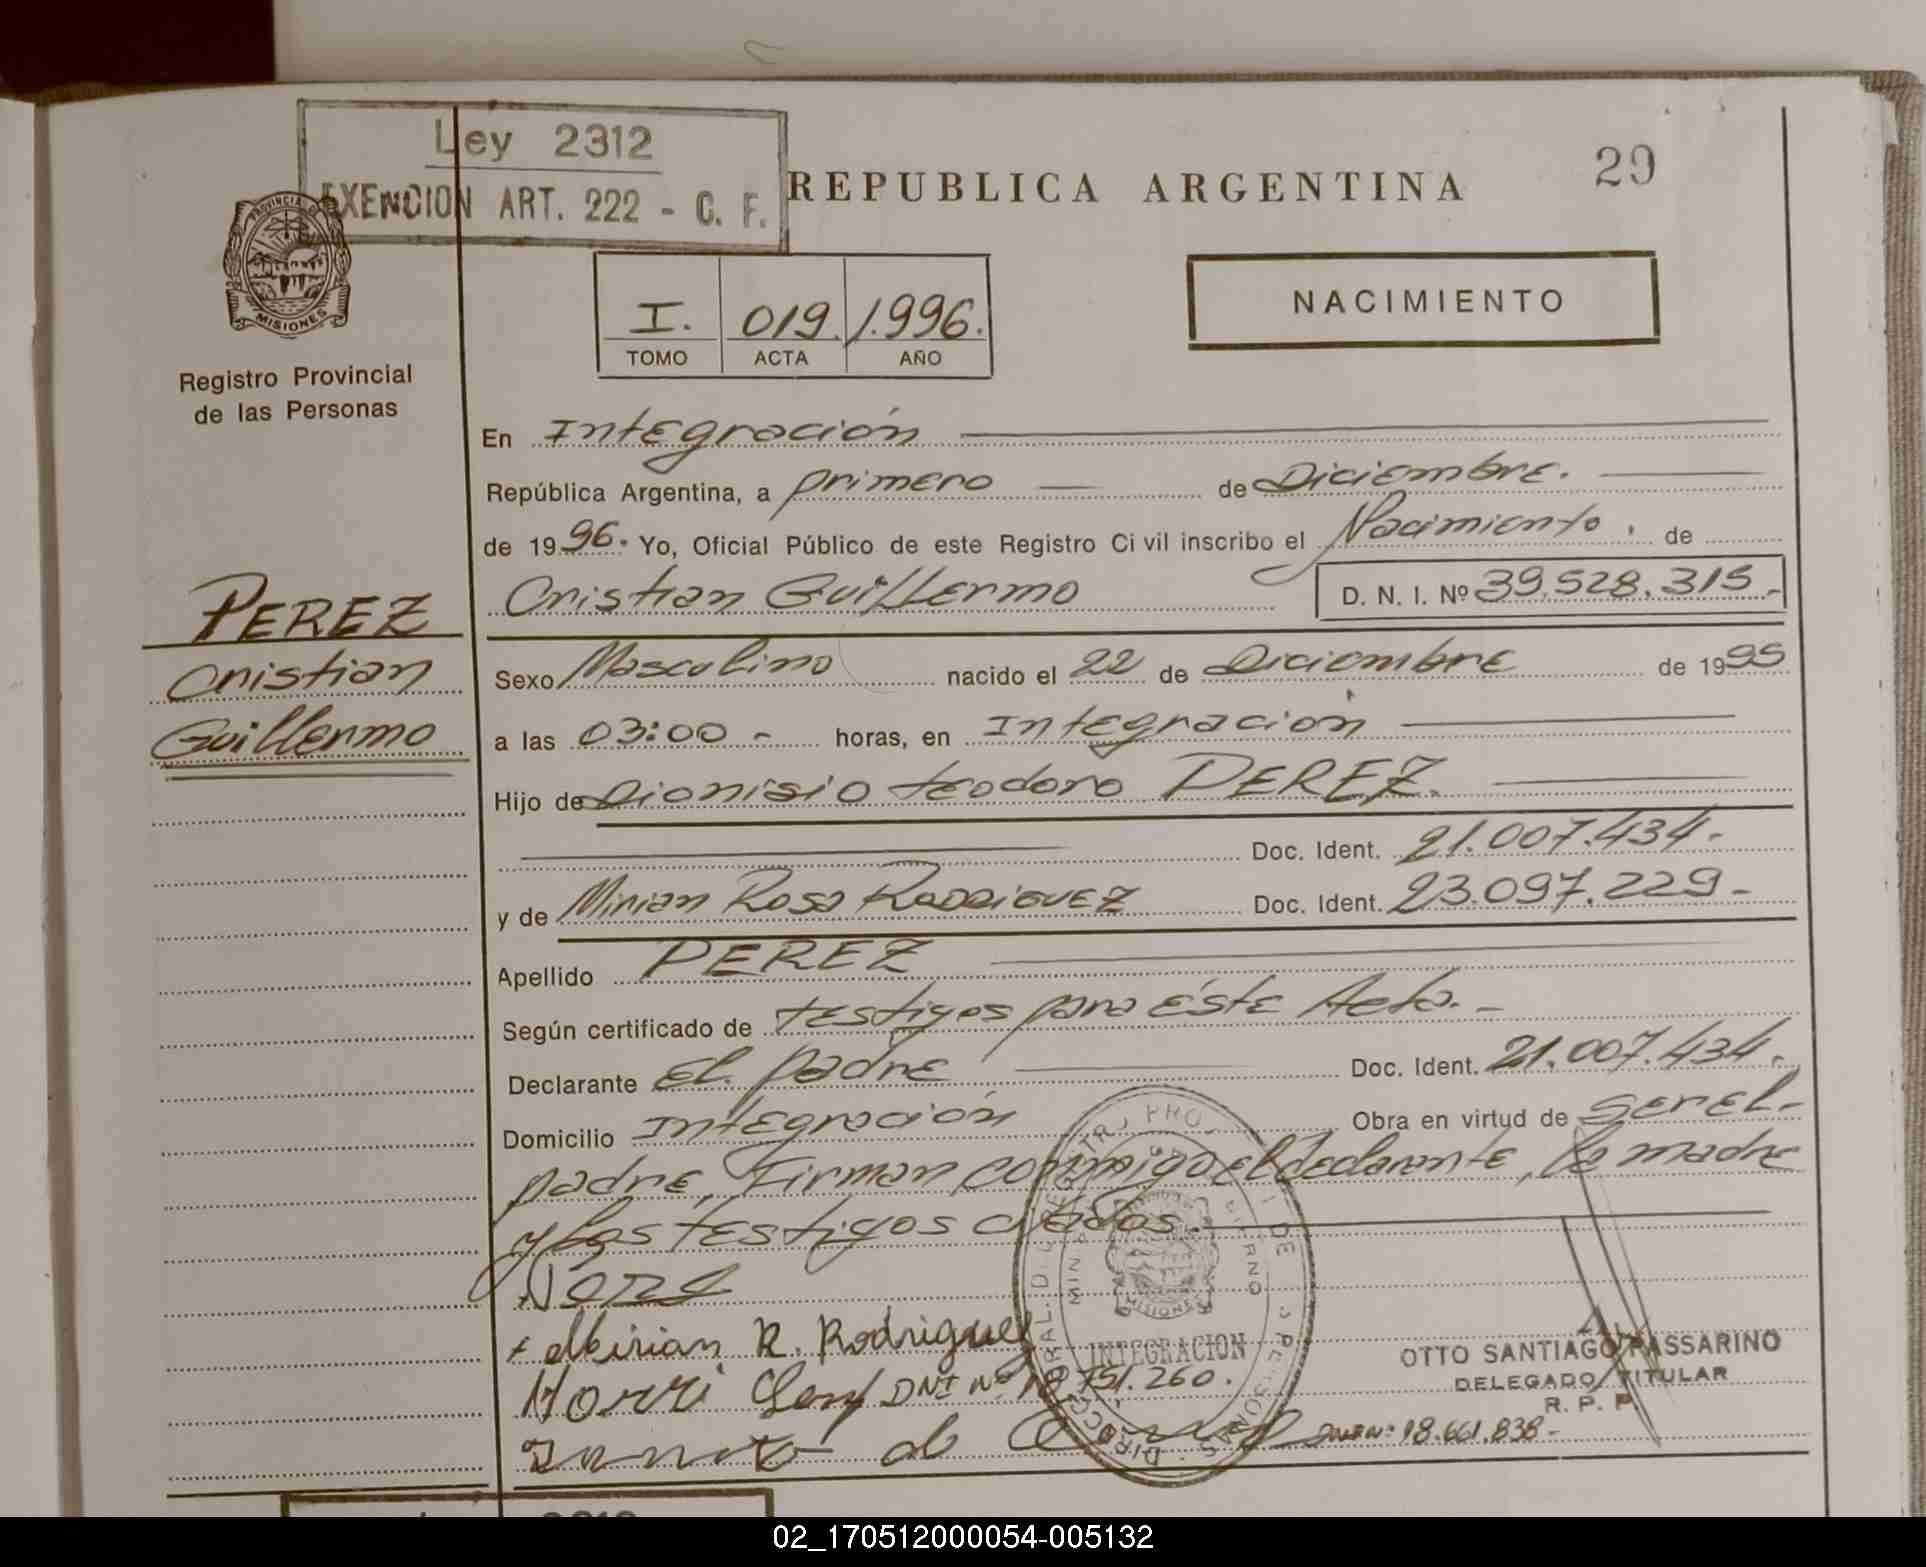 Ley 2312
EXENCION ART. 222 - C. F.
REPUBLICA ARGENTINA
29
PROVINCIA DE
MISIONES
Registro Provincial
de las Personas
I. 019. 1.996.
TOMO ACTA AÑO
NACIMIENTO
En Integración
República Argentina, a primero de Diciembre.
de 1996. Yo, Oficial Público de este Registro Civil inscribo el Nacimiento. de
Cristian Guillermo D. N. I. Nº 39.528.315.-
PEREZ
Cristian
Guillermo
Sexo Masculino nacido el 22 de Diciembre de 1995
a las 03:00 - horas, en Integración
Hijo de Dionisio teodoro PEREZ.
Doc. Ident. 21.007.434.-
y de Mirian Rosa RODRIGUEZ Doc. Ident. 23.097.229.-
Apellido PEREZ
Según certificado de testigos para éste Acto.-
Declarante El padre Doc. Ident. 21.007.434.
Domicilio Integración Obra en virtud de ser el-
padre, Firman conmigo el declarante, la madre
y los testigos citados.
Mirian R. Rodriguez
DNI Nº 18.751.260.
INTEGRACION
MISIONES
OTTO SANTIAGO PASSARINO
DELEGADO TITULAR
R. P. P.
DNI Nº: 18.661.838.-
02_170512000054-005132